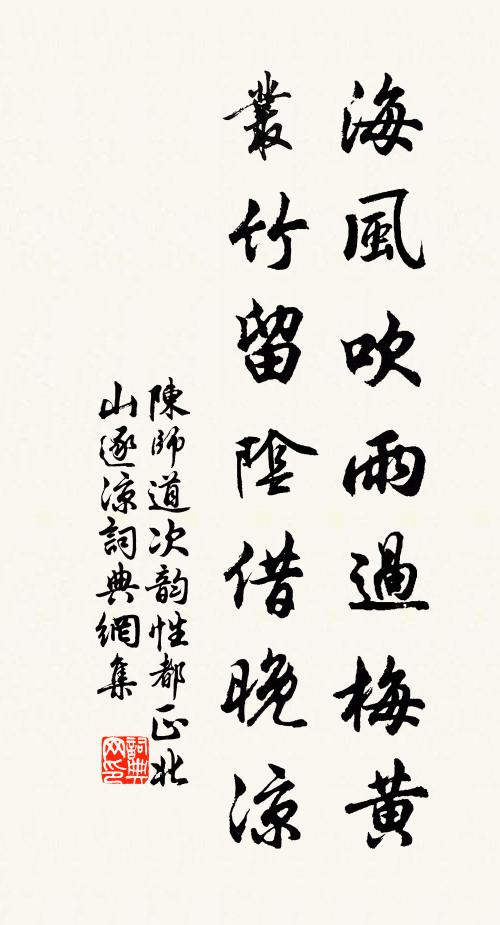 海風吹雨過梅黃
叢竹留陰借晚涼
陳師道次韵性都正北
山逐涼詞典網集
詞典
网印